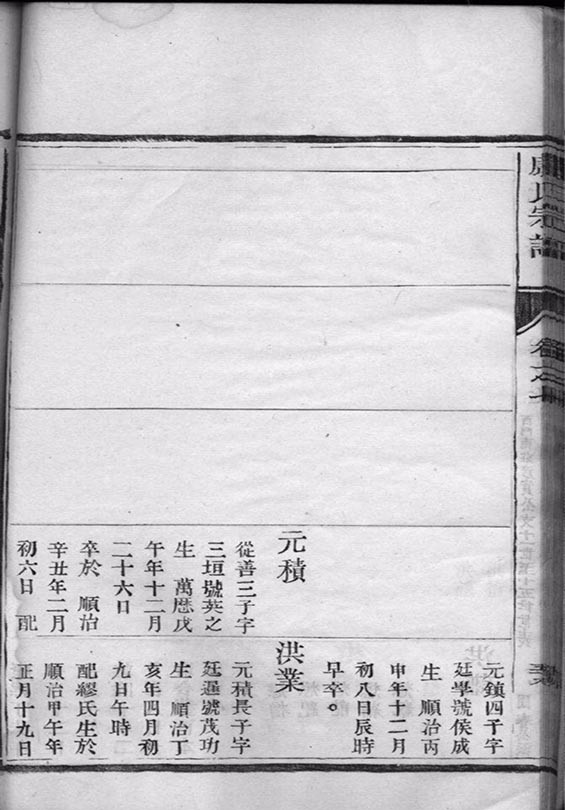 元積
從善三子字
三垣號英之
生　萬厯戊
午年十二月
二十六日
卒於　順治
辛丑年二月
初六日　配
元鎮四子字
廷學號侯成
生　順治丙
申年十二月
初八日辰時
早卒。
洪業
元積長子字
廷暹號茂功
生　順治丁
亥年四月初
九日午時
配繆氏生於
順治甲午年
正月十九日
氏宗譜